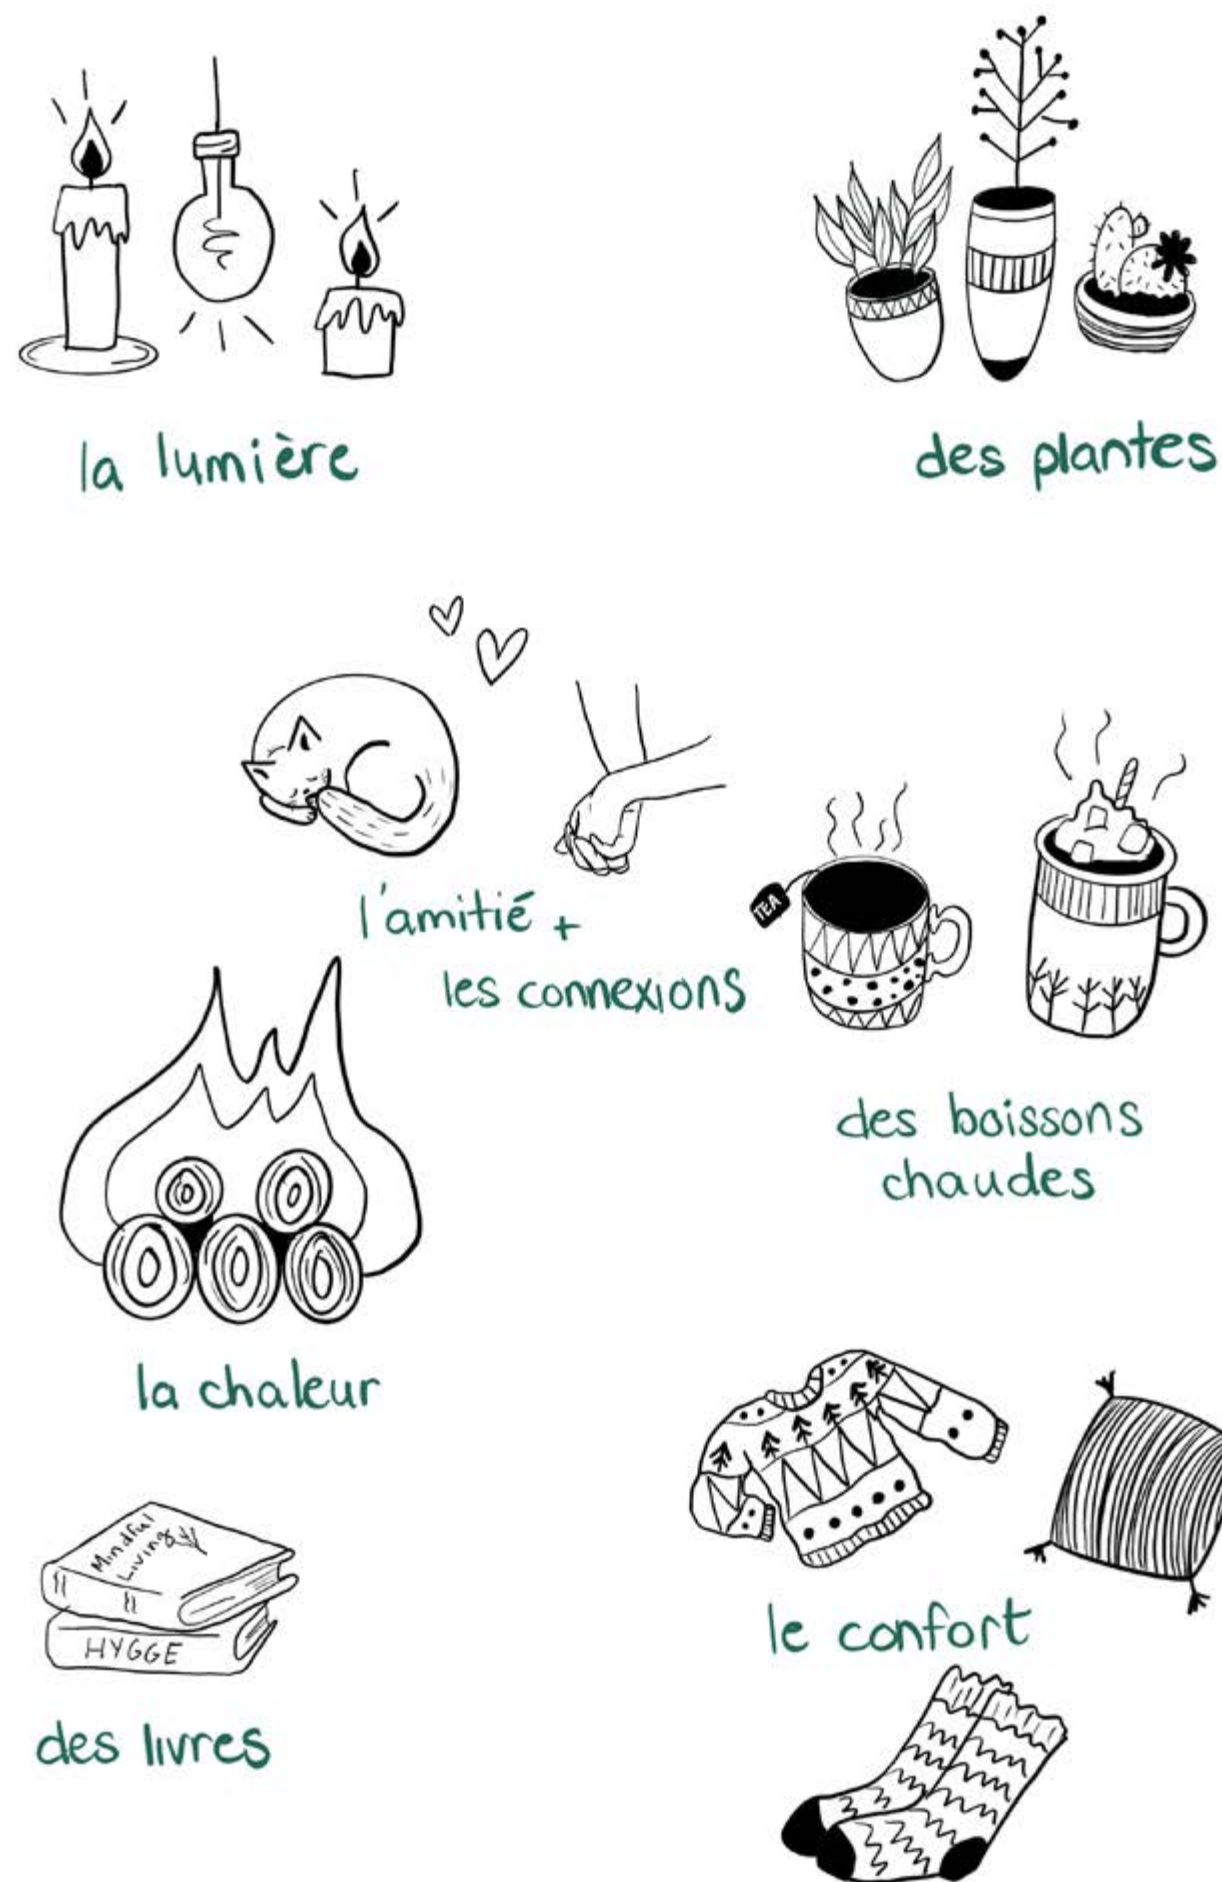 la lumière
des plantes
l'amitié +
les connexions
TEA
des boissons
chaudes
la chaleur
Mindful
Living
HYGGE
des livres
le confort